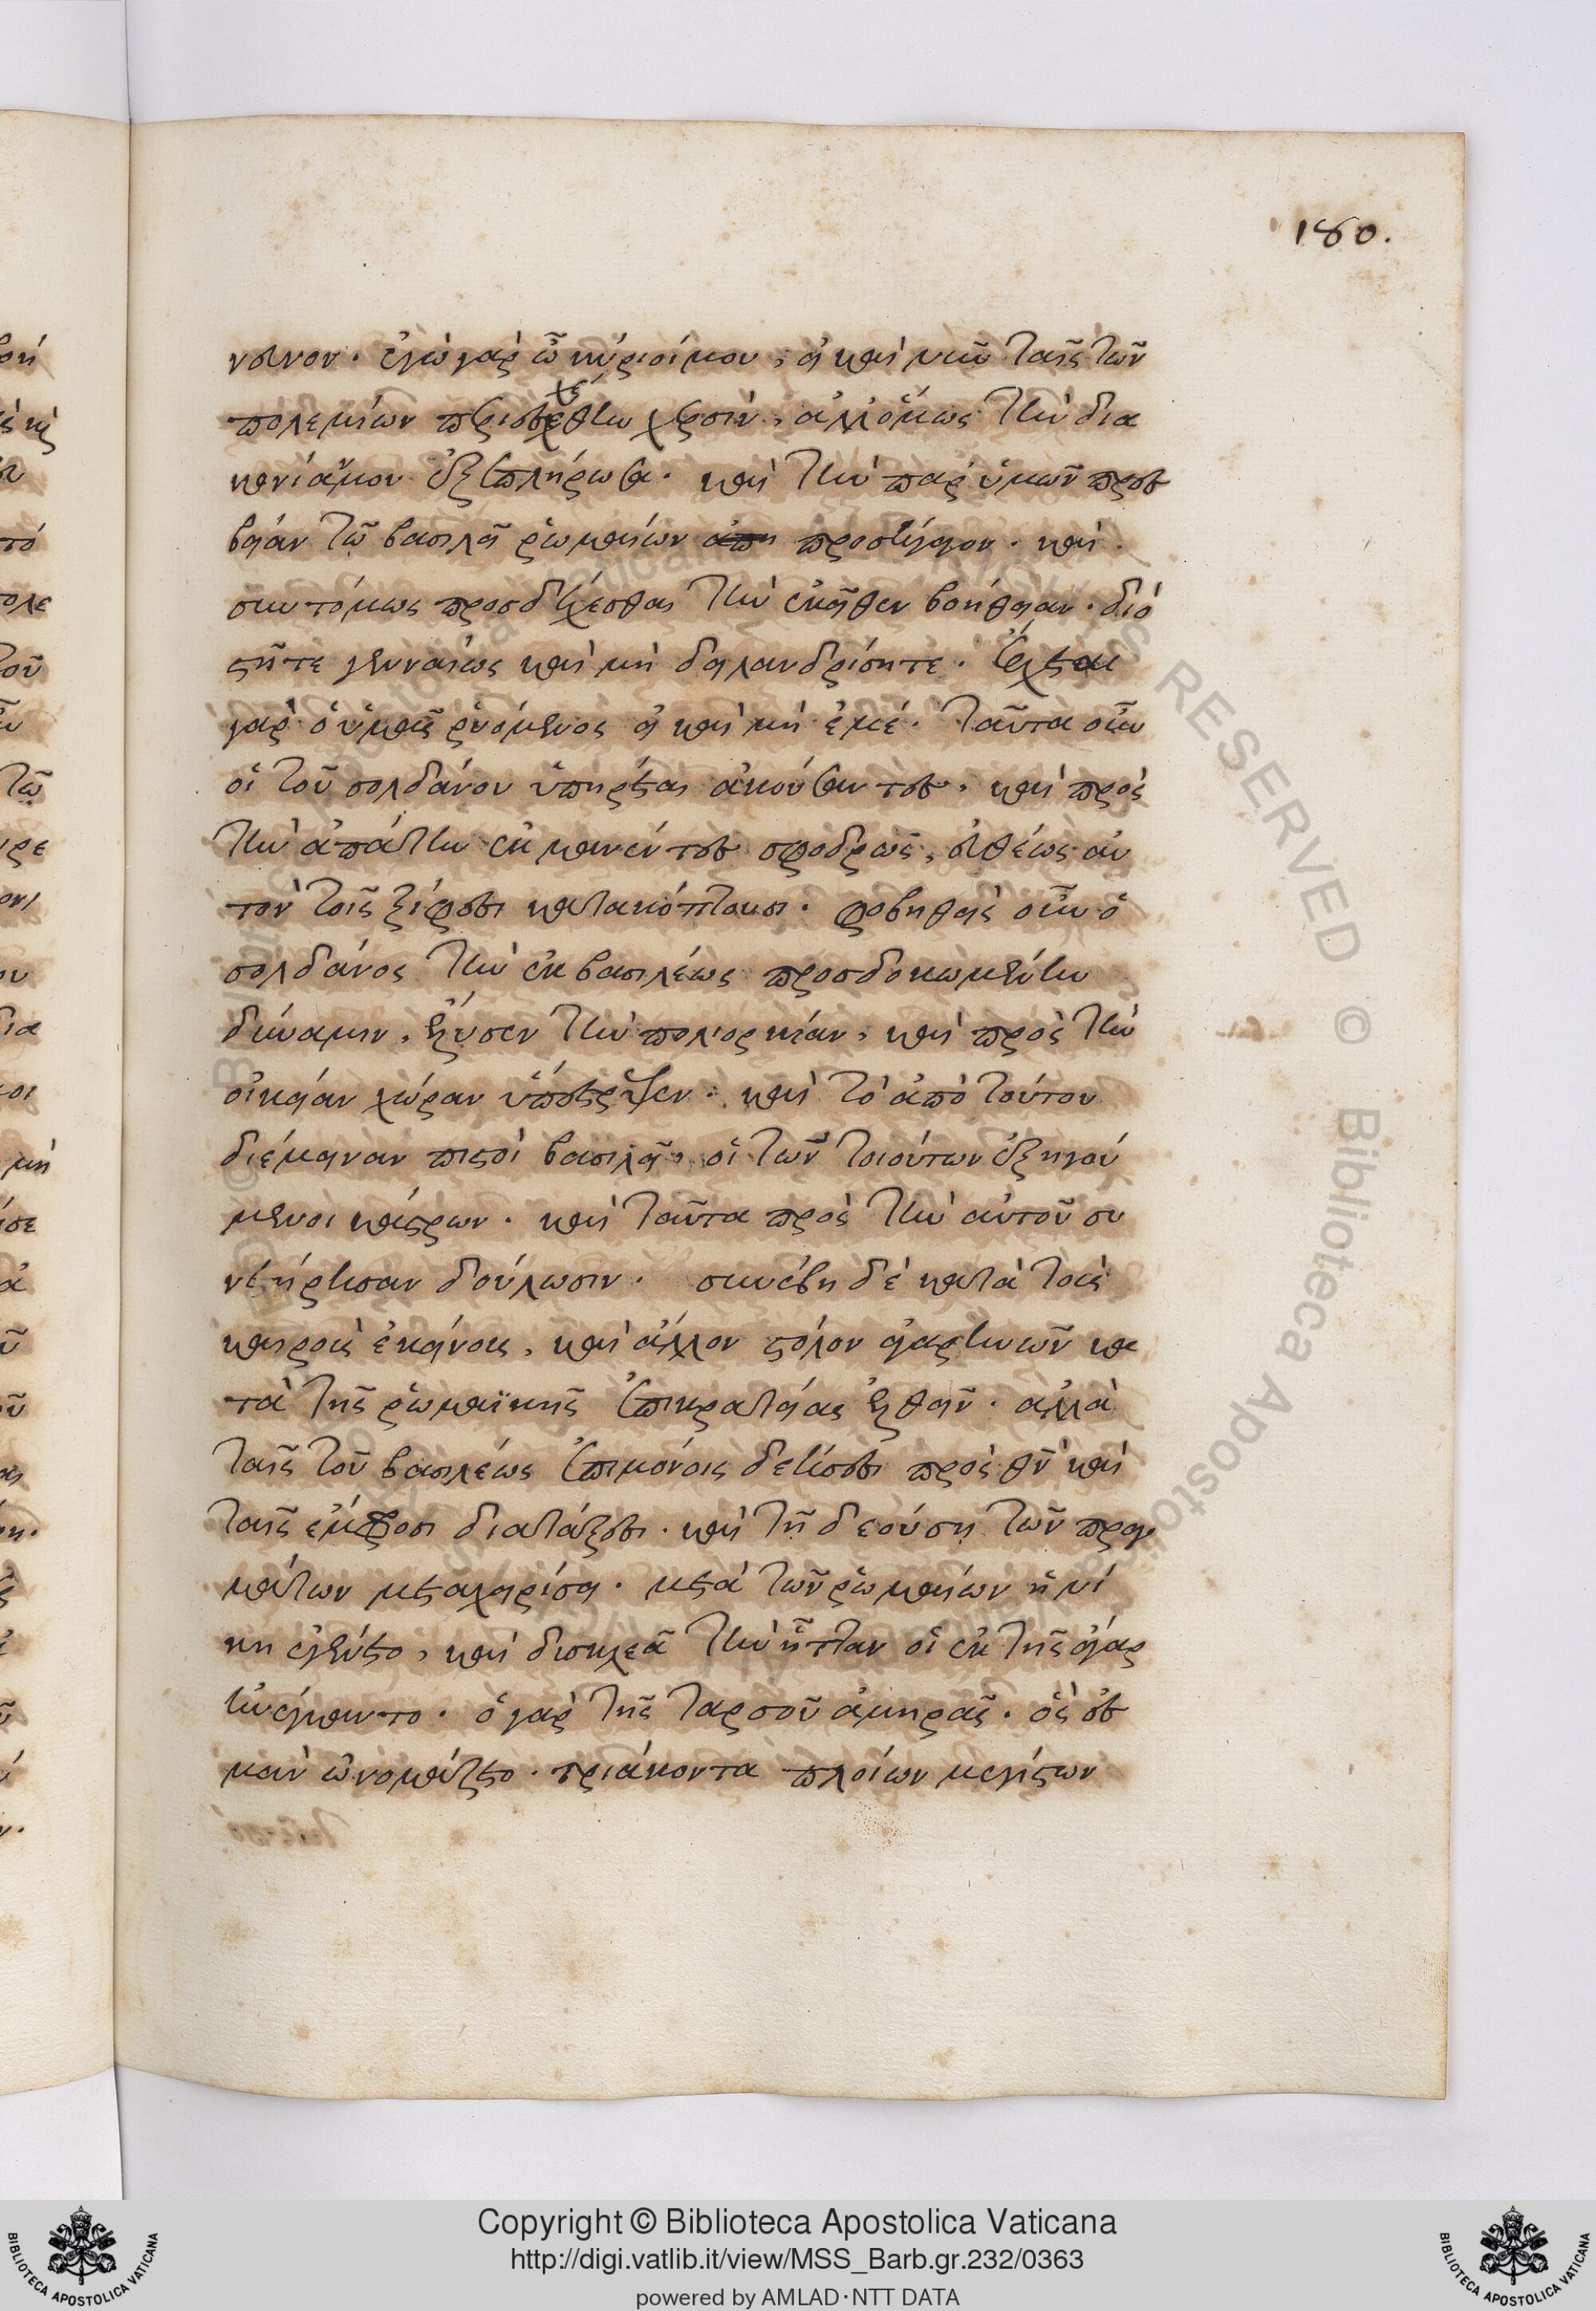 180.
νευον. ἐγὼ γὰρ ὦ κύριοί μου, εἰ καὶ νῦν ταῖς τῶν
πολεμίων περιεσχέθην χερσὶν, ἀλλ' ὅμως τὴν δια
κονίαν μου ἐξεπλήρωσα. καὶ τὴν παρ' ὑμῶν πρεσ
βείαν τῷ βασιλεῖ ῥωμαίων προσήγαγον. καὶ
συντόμως προσδέχεσθαι τὴν ἐκεῖθεν βοήθειαν. διὸ
στῆτε γενναίως καὶ μὴ δειλανδρίσητε. ἔρχεται
γὰρ ὁ ὑμᾶς ῥυόμενος εἰ καὶ μὴ ἐμέ. ταῦτα οὖν
οἱ τοῦ σολδάνου ὑπηρέται ἀκούσαντες, καὶ πρὸς
τὴν ἀπάτην ἐκμανέντες σφοδρῶς, εὐθέως αὐ
τὸν τοῖς ξίφεσι κατακόπτουσι. φοβηθεὶς οὖν ὁ
σολδάνος τὴν ἐκ βασιλέως προσδοκωμένην
δύναμιν, ἔλυσεν τὴν πολιορκίαν, καὶ πρὸς τὴν
οἰκείαν χώραν ὑπέστρεψεν. καὶ τὸ ἀπὸ τούτου
διέμειναν πιστοὶ βασιλεῖ, οἱ τῶν τοιούτων ἐξηγού
μενοι κάστρων. καὶ ταῦτα πρὸς τὴν αὐτοῦ συ
νετήρησαν δούλωσιν. συνέβη δὲ κατὰ τοὺς
καιροὺς ἐκείνους, καὶ ἄλλον στόλον ἀγαρηνῶν κα
τὰ τῆς ῥωμαϊκῆς ἐπικρατείας ἐλθεῖν. ἀλλὰ
ταῖς τοῦ βασιλέως ἐπιμόνοις δεήσεσι πρὸς θν̄ καὶ
ταῖς ἐμφροσι διατάξεσι. καὶ τῇ δεούσῃ τῶν πραγ
μάτων μεταχειρίσει. μετὰ τῶν ῥωμαίων ἡ νί
κη ἐγένετο, καὶ δυσκλεᾶ τὴν ἧτταν οἱ ἐκ τῆς ἄγαρ
ἠνέγκαντο. ὁ γὰρ τῆς ταρσοῦ ἀμηρᾶς. ὃς ἐσ
μὰν ὠνομάζετο. τριάκοντα πλοίων μεγίστων
Copyright © Biblioteca Apostolica Vaticana
http://digi.vatlib.it/view/MSS_Barb.gr.232/0363
powered by AMLAD·NTT DATA